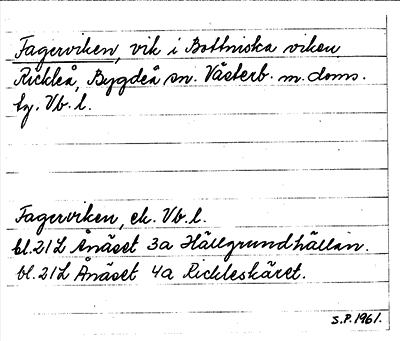 Fagerviken, vik i Bottniska viken
Rickleå, Bygdeå sn. Västerb. m. doms.
tg. Vb. l.
Fagerviken, ek. Vb. l.
bl. 21 L Ånäset 3a Hällgrundhällan.
bl. 21 L Ånäset 4a Rickleskäret.
S.P. 1961.